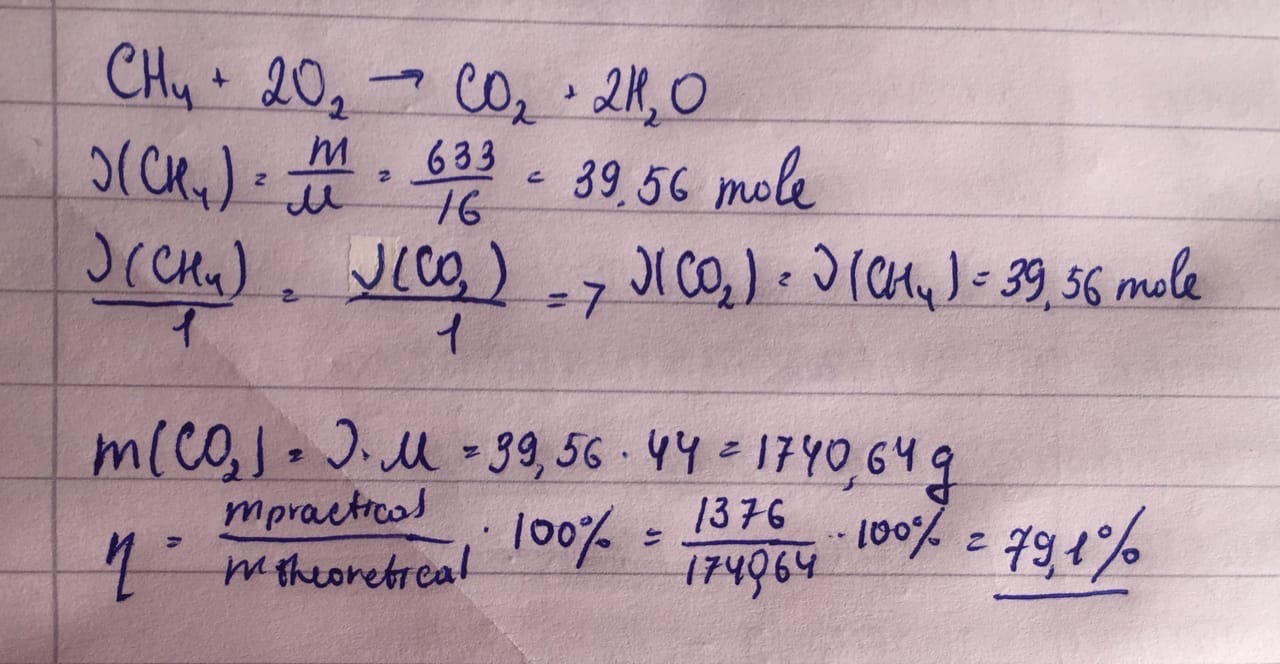 CH₄ + 2O₂ → CO₂ + 2H₂O
ν(CH₄) = m/μ = 633/16 = 39.56 mole
ν(CH₄)/1 = ν(CO₂)/1 => ν(CO₂) = ν(CH₄) = 39,56 mole
m(CO₂) = ν · μ = 39,56 · 44 = 1740,64 g
η = mpractical/mtheoretical · 100% = 1376/1740,64 · 100% = 79,1%